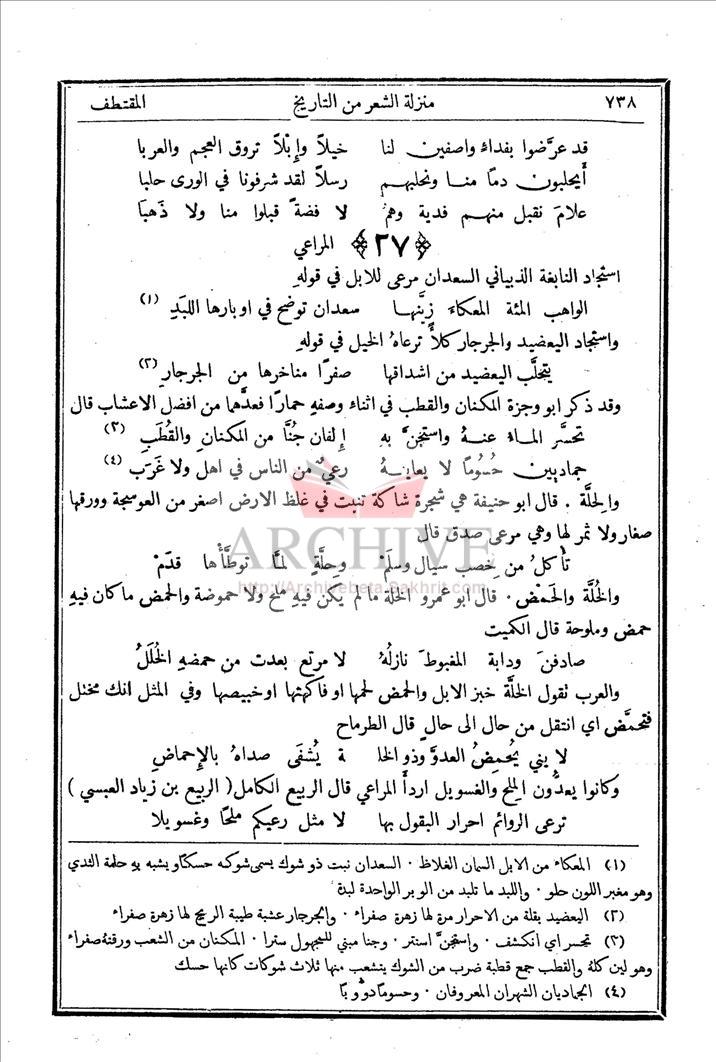 ٧٣٨ منزلة الشعر من التاريخ المقتطف
قد عرَّضوا بفداءٍ واصفين لنا خيلاً وإِبْلاً تروق العجم والعربا
أَيحلبون دمًا منا ونحلبهم رسلاً لقد شرفونا في الورى حلبا
علامَ نقبل منهم فدية وهمُ لا فضةً قبلوا منا ولا ذَهبَا
﴿٢٧﴾ المراعي
استجاد النابغة الذبياني السعدان مرعى للابل في قولهِ
الواهب المئة المعكاءَ زيَّنها سعدان توضح في اوبارها اللبَدِ (١)
واستجاد اليعضيد والجرجار كلأً ترعاهُ الخيل في قولهِ
يتحلَّب اليعضيد من اشداقها صفرًا مناخرها من الجرجارِ (٢)
وقد ذكر ابو وجزة المكنان والقطب في اثناء وصفهِ حمارًا فعدَّها من افضل الاعشاب قال
تحسَّر الماءُ عنهُ واستجنَّ بهِ إِلفان جُنَّا من المكنانِ والقُطَبِ (٣)
جماديين حُسُومًا لا يعاينهُ رعيٌ من الناس في اهل ولا غَرَب (٤)
والحلَّة . قال ابو حنيفة هي شجيرة شاكة تنبت في غلظ الارض اصغر من العوسجة وورقها
صغار ولا ثمر لها وهي مرعى صدق قال
تأكلُ من خصب سيال وسلَمْ وحلَّةٍ لمَّا توطَّأْها قدَمْ
والخُلَّة والحَمْض . قال ابو عمرو الخلة ما لم يكن فيهِ ملح ولا حموضة والحمض ما كان فيهِ
حمض وملوحة قال الكميت
صادفنَ وادية المغبوطَ نازلُهُ لا مرتع بعدت من حمضهِ الخُلَلُ
والعرب تقول الخلَّة خبز الابل والحمض لحمها او فاكهتها او خبيصها وفي المثل انك مختل
فتحمَّض اي انتقل من حال الى حالٍ قال الطرماح
لا يني يُحمِضُ العدوَّ وذو الخلـ ـة يُشفَى صداهُ بالإِحماضِ
وكانوا يعدُّون الملح والغسويل اردأَ المراعي قال الربيع الكامل (الربيع بن زياد العبسي)
ترعى الروائم احرار البقول بها لا مثل رعيكم ملحًا وغسويلا
(١) المعكاء من الابل السمان الغلاظ . السعدان نبت ذو شوك يسمى شوكه حسكًا ويشبه بهِ حلمة الثدي
وهو مغبر اللون حلو . واللبد ما تلبد من الوبر الواحدة لبدة
(٢) اليعضيد بقلة من الاحرار مرة لها زهرة صفراء . والجرجار عشبة طيبة الريح لها زهرة صفراء
(٣) تحسر اي انكشف . واستجنَّ استتر . وجنا مبني للمجهول سترا . المكنان من الشعب ورقته صفراء
وهو لين كله والقطب جمع قطبة ضرب من الشوك يتشعب منها ثلاث شوكات كانها حسك
(٤) الجماديان الشهران المعروفان . وحسومًا دؤوبًا
ARCHIVE
http://Archivebeta.Sakhrit.com